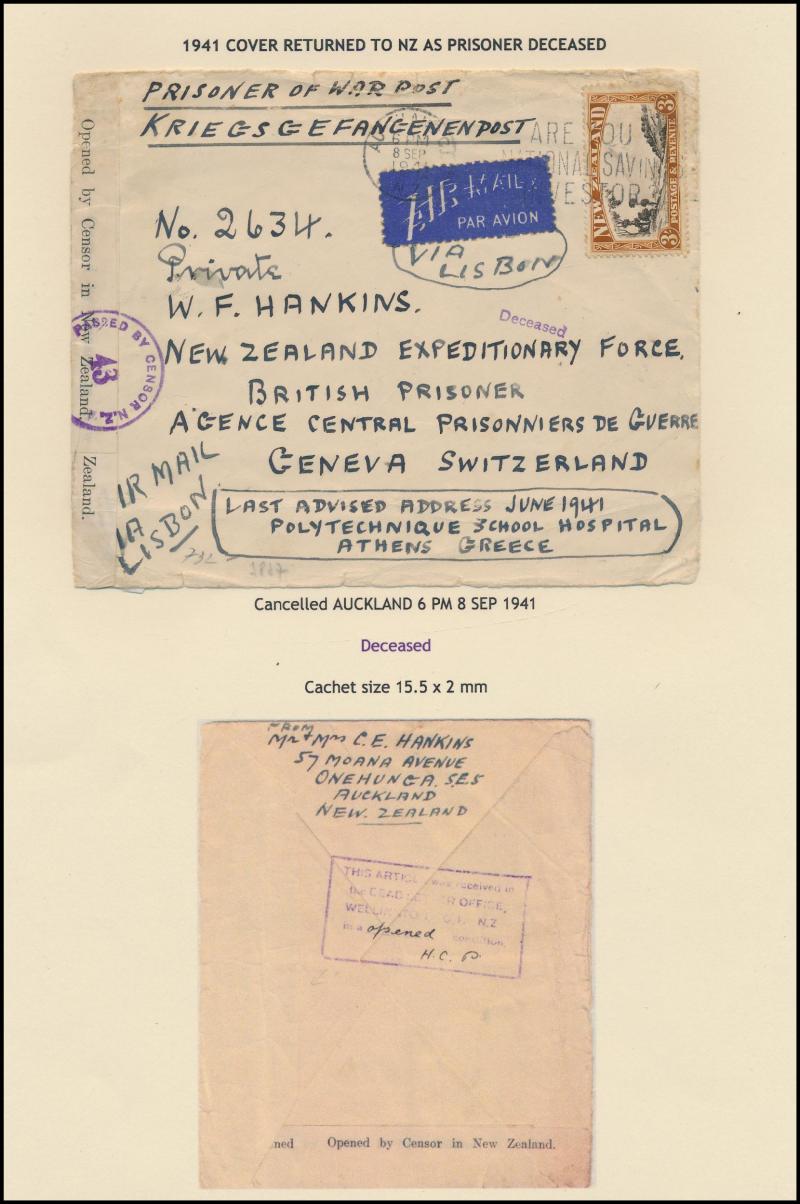 1941 COVER RETURNED TO NZ AS PRISONER DECEASED
PRISONER OF WAR POST
KRIEGSGEFANGENENPOST
6 PM
8 SEP
1941
N.Z
ARE YOU
NATIONAL SAVIN
INVESTOR?
NEW ZEALAND
3/-
POSTAGE & REVENUE
3/-
AIR MAIL
PAR AVION
VIA
LISBON
Opened by Censor in New Zealand.
Zealand.
PASSED BY CENSOR N.Z.
43
No. 2634.
Private
W. F. HANKINS.
Deceased
NEW ZEALAND EXPEDITIONARY FORCE,
BRITISH PRISONER
AGENCE CENTRAL PRISONNIERS DE GUERRE
GENEVA SWITZERLAND
IR MAIL
IA
LISBON
LAST ADVISED ADDRESS JUNE 1941
POLYTECHNIQUE SCHOOL HOSPITAL
ATHENS GREECE
Cancelled AUCKLAND 6 PM 8 SEP 1941
Deceased
Cachet size 15.5 x 2 mm
FROM
Mr + Mrs C. E. HANKINS
57 MOANA AVENUE
ONEHUNGA. S.E.5
AUCKLAND
NEW. ZEALAND
THIS ARTICLE was received in
the DEAD LETTER OFFICE,
WELLINGTON, N.Z
in a opened condition.
H.C. P.
ned Opened by Censor in New Zealand.